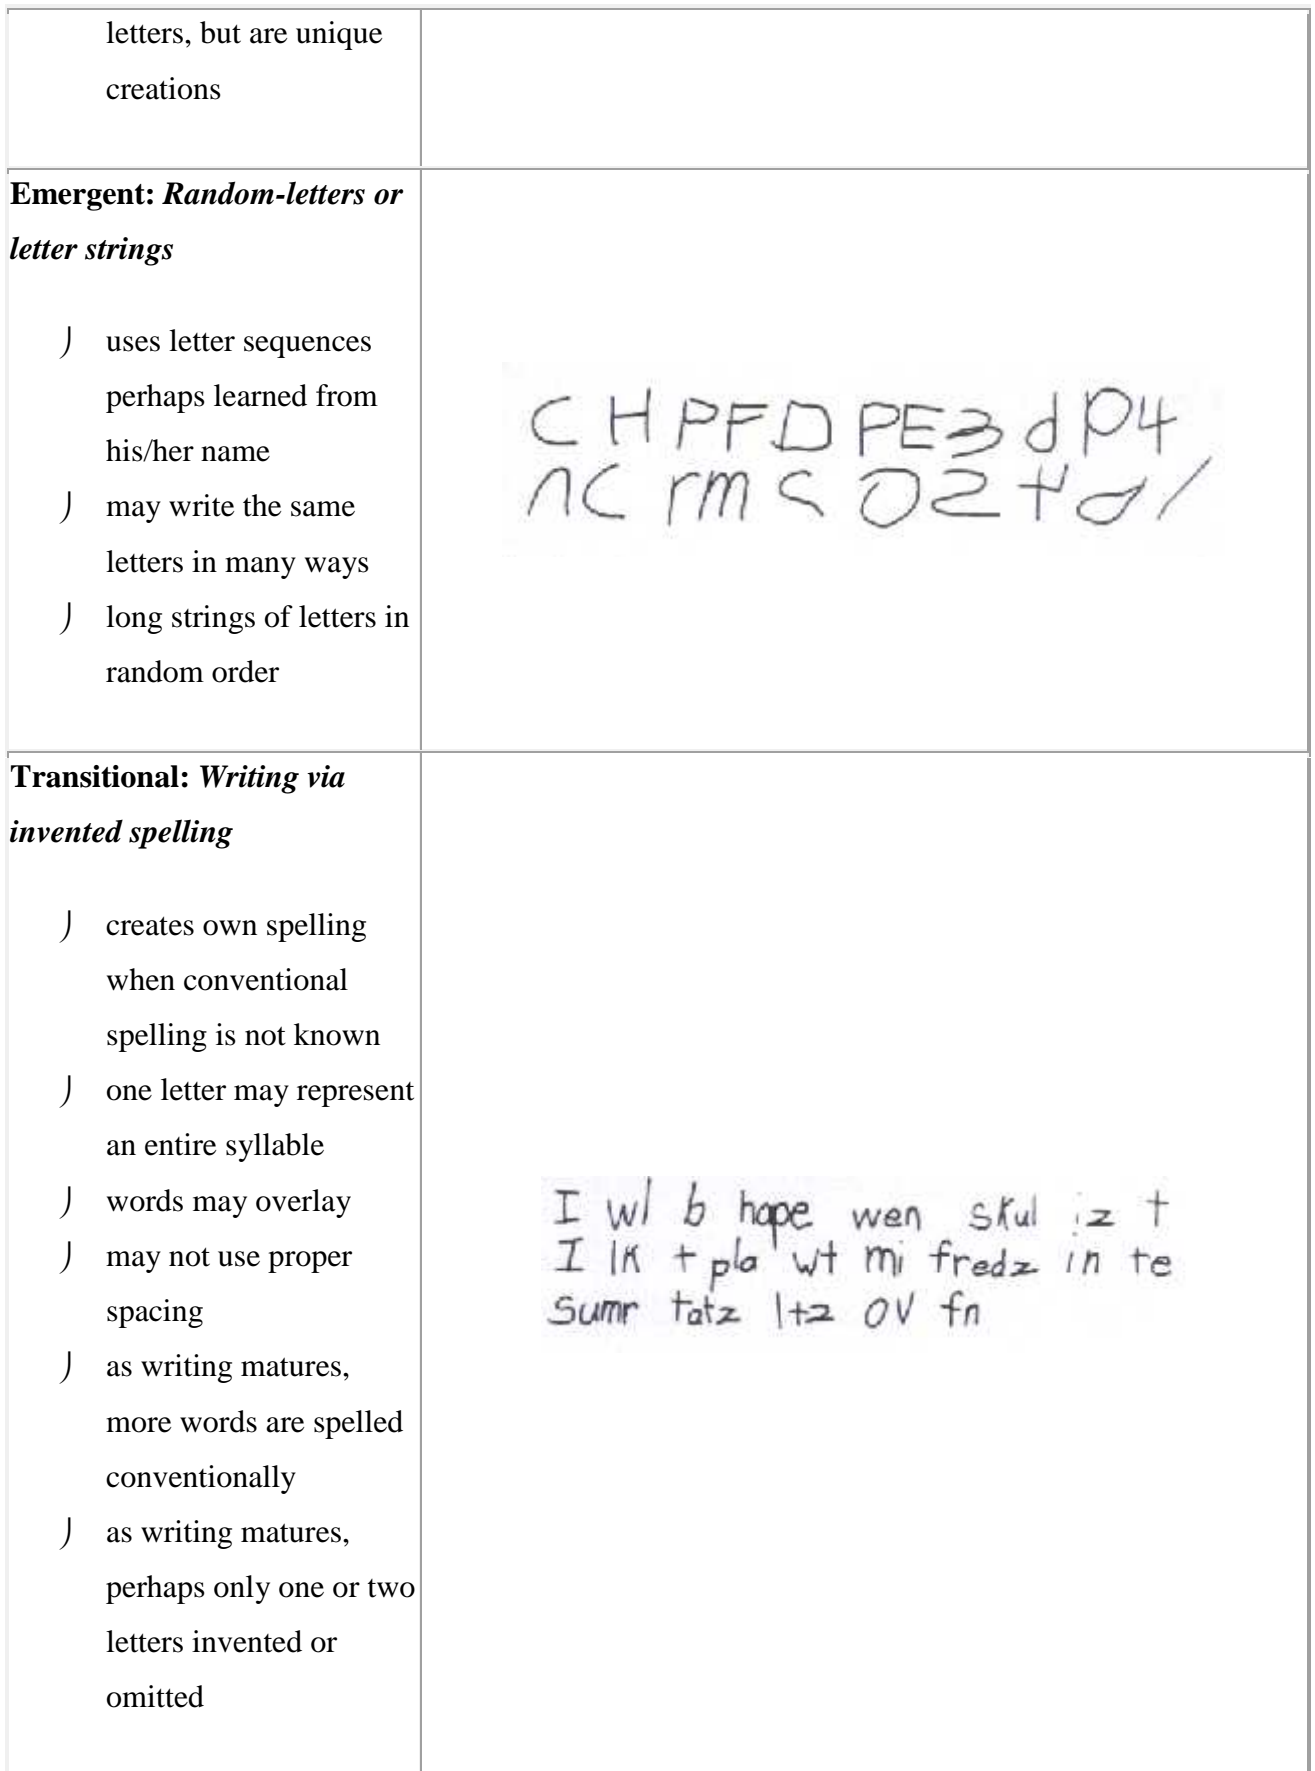 letters, but are unique
creations
Emergent: Random-letters or
letter strings
uses letter sequences
perhaps learned from
his/her name
may write the same
letters in many ways
long strings of letters in
random order
C H P F D P E 3 d p 4
n C r m
Transitional: Writing via
invented spelling
creates own spelling
when conventional
spelling is not known
one letter may represent
an entire syllable
words may overlay
may not use proper
spacing
as writing matures,
more words are spelled
conventionally
as writing matures,
perhaps only one or two
letters invented or
omitted
I wl b hape wen skul iz t
I lk t pla wt mi fredz in te
Sumr tatz ltz ov fn